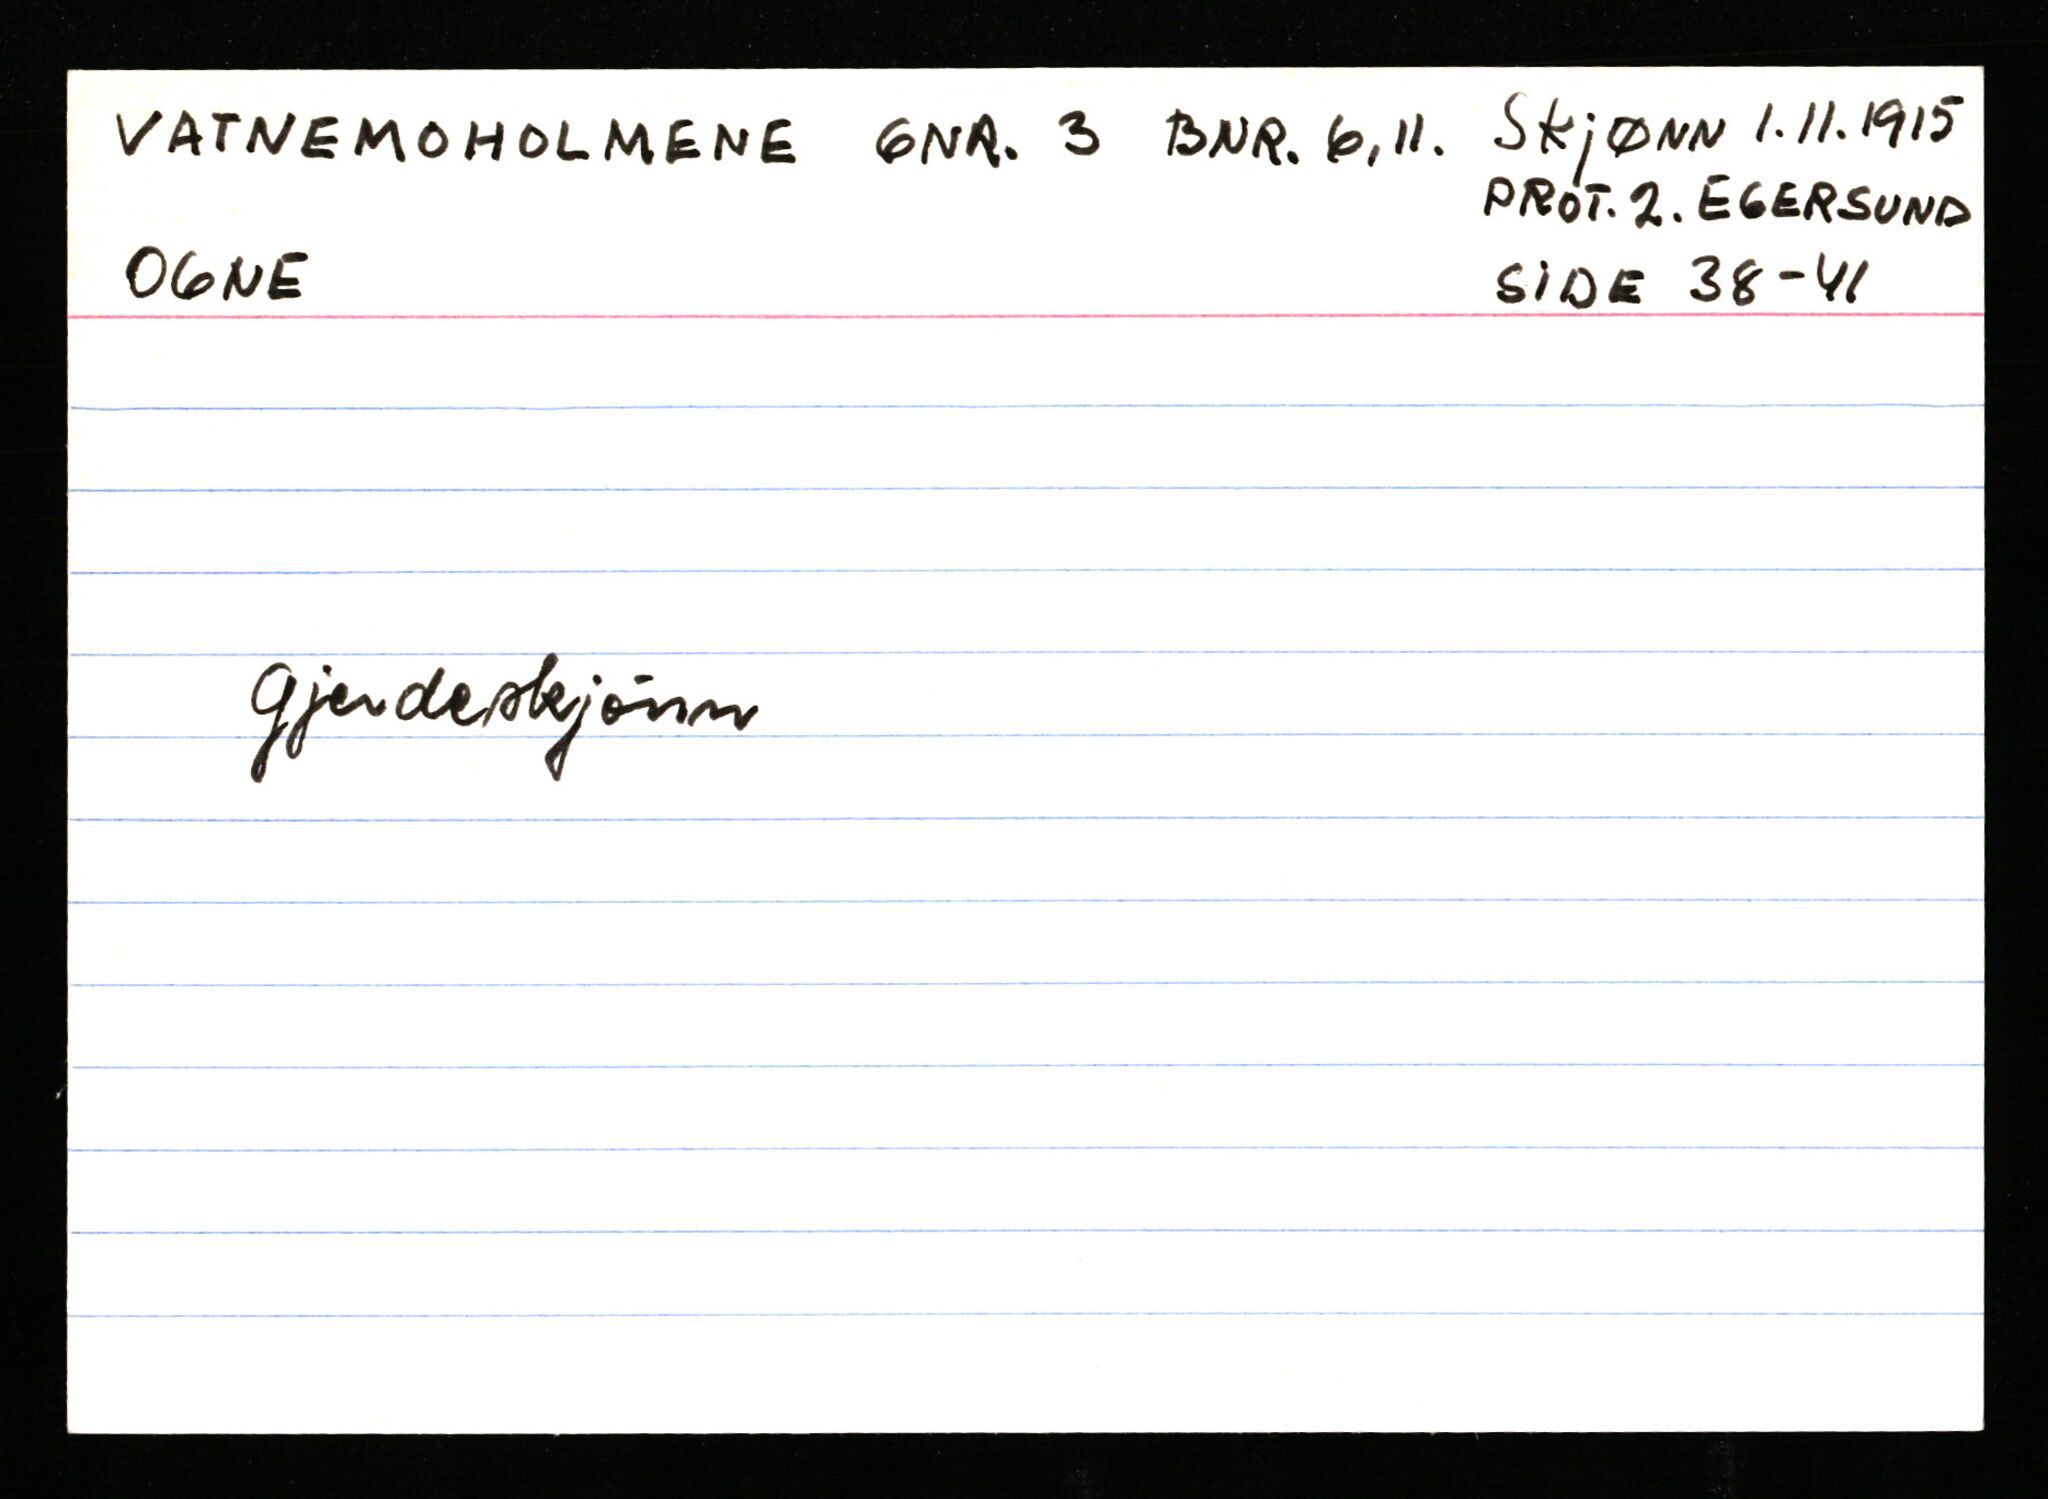 VATNEMOHOLMENE GNR. 3 BNR. 6, 11. Skjønn 1.11.1915
PROT. 2. EGERSUND
OGNE SIDE 38-41
Gjerdeskjønn